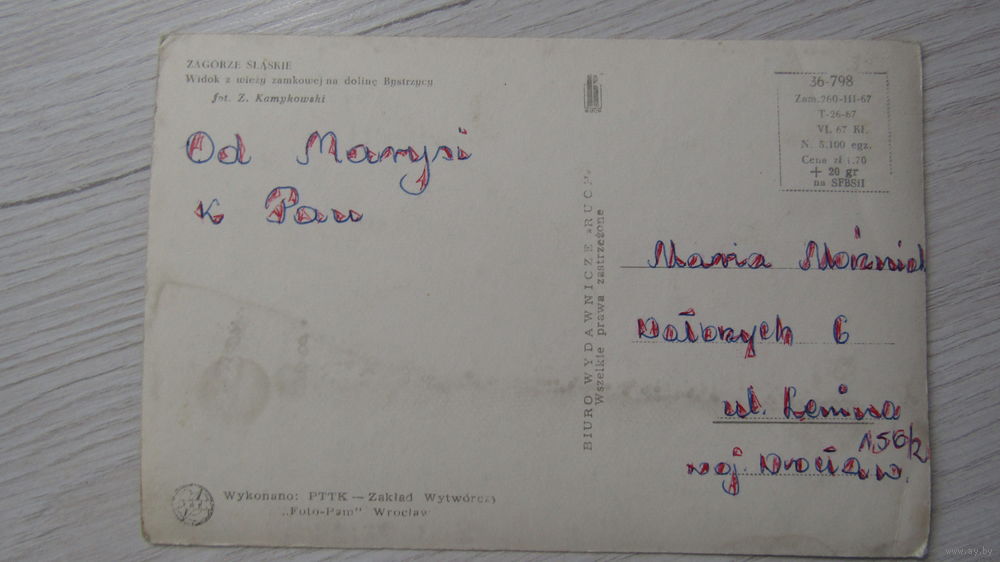 ZAGÓRZE ŚLĄSKIE
Widok z wieży zamkowej na dolinę Bystrzycy
fot. Z. Kamykowski
Od Marysi
K Pau
BIURO WYDAWNICZE „RUCH"
Wszelkie prawa zastrzeżone
36-798
Zam. 260-III-67
T-26-67
VI. 67 Kł.
N. 5.100 egz.
Cena zł 1.70
+ 20 gr
na SFBSiI
Maria
6
ul. Lenina
156/2
woj.
Wykonano: PTTK — Zakład Wytwórczy
„Foto-Pam" Wrocław
www.ay.by